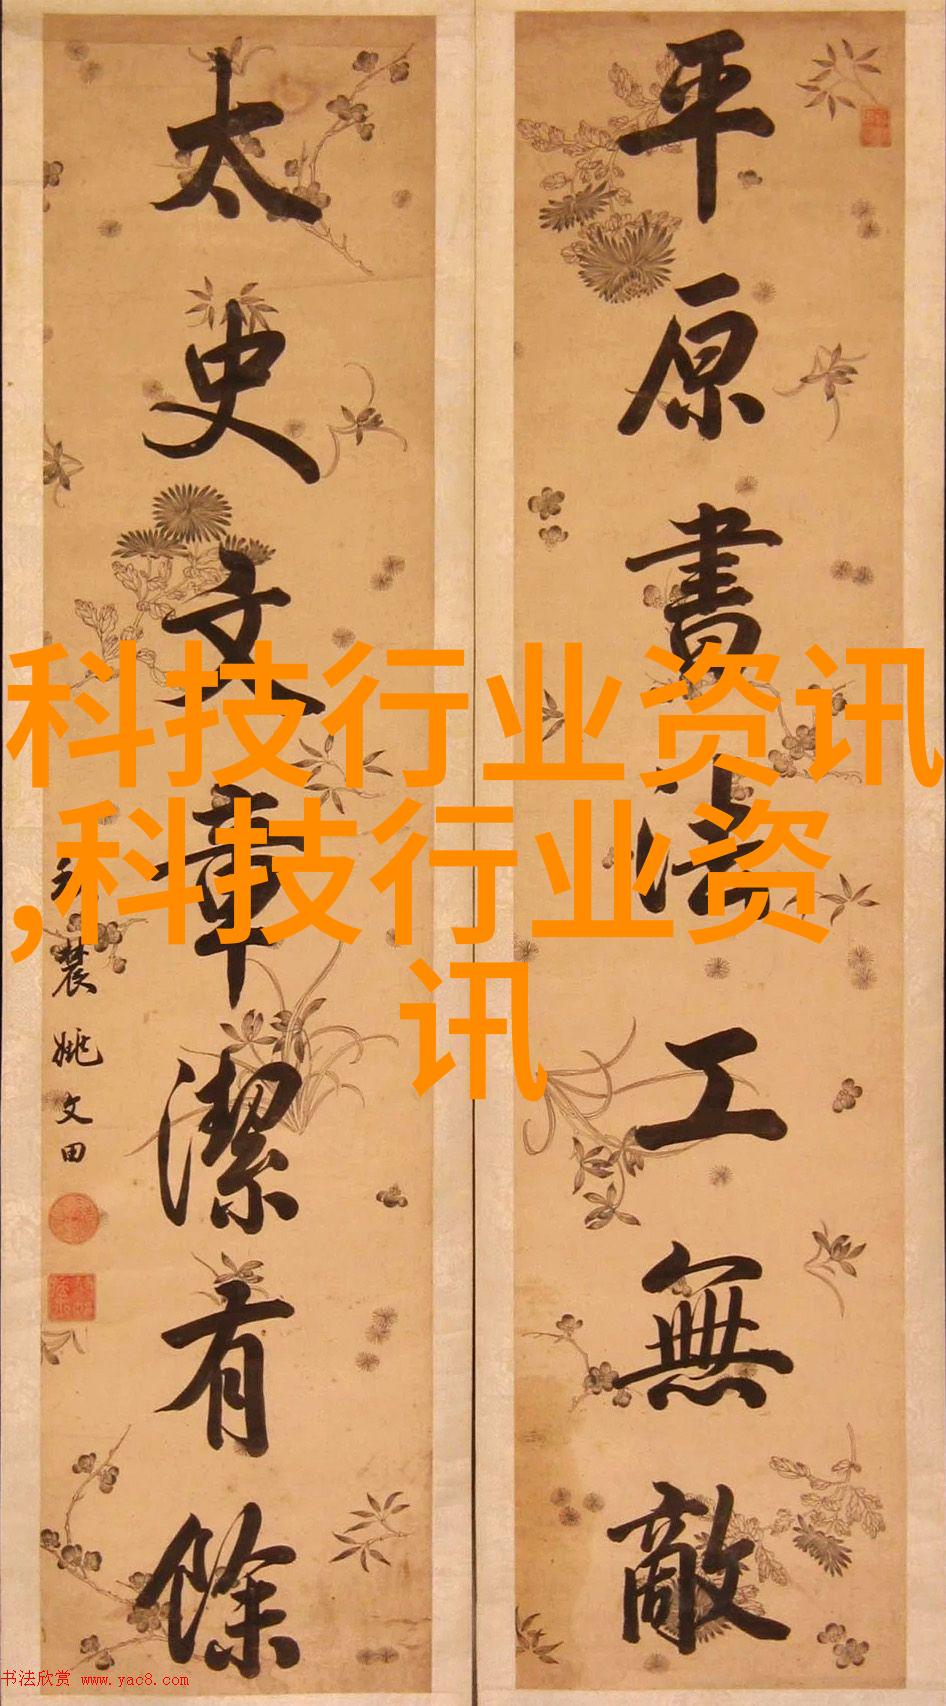 平原書法工無敵
太史文章潔有餘
秋農姚文田
科技行业资讯
,科技行业资
讯
书法欣赏 www.yac8.com